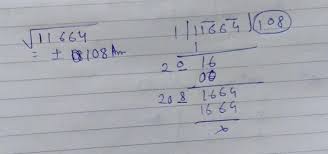 √11664
= ± 108 Ans
1 | 11664 | 108
1
20 | 16
00
208 | 1664
1664
x